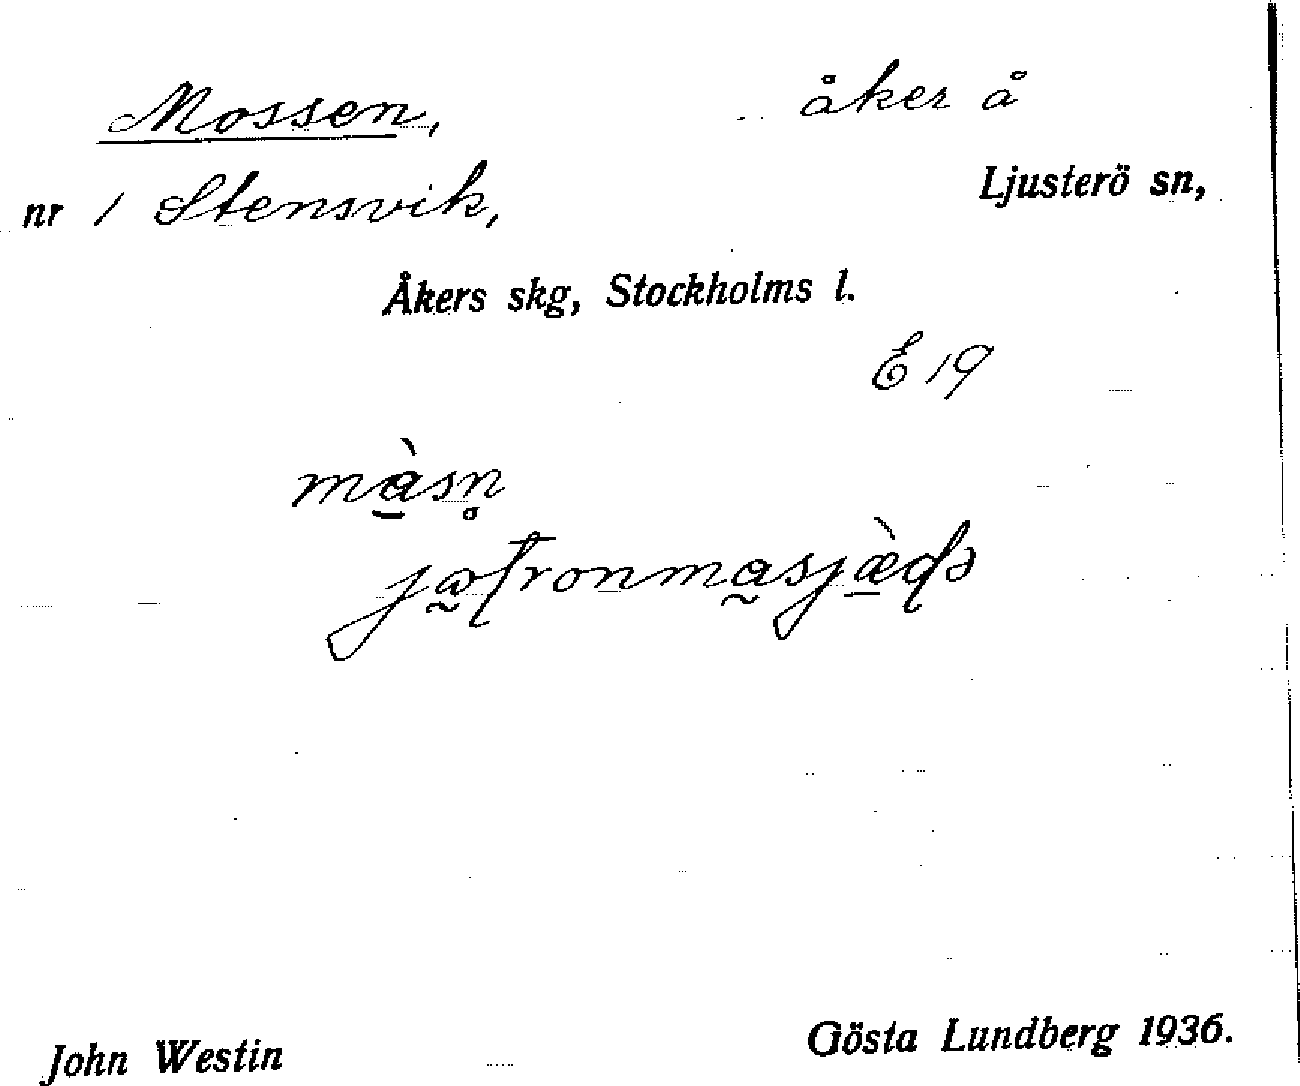 Mossen, åker å
nr 1 Stensvik, Ljusterö sn,
Åkers skg, Stockholms l.
E 19
màsn̥
John Westin Gösta Lundberg 1936.